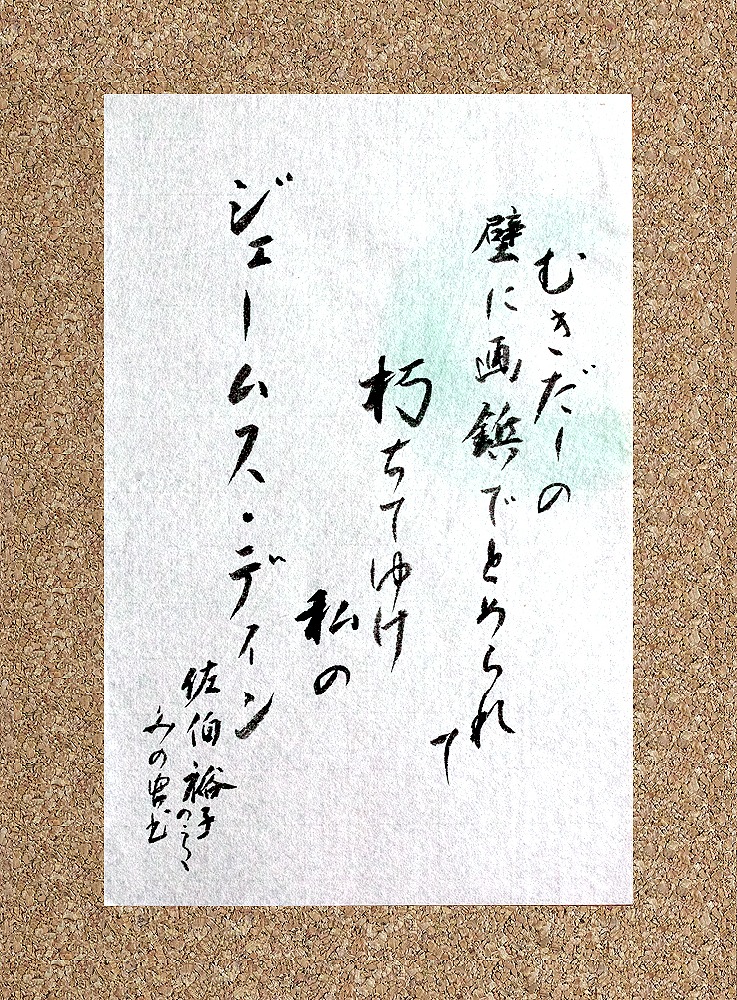 むきだしの
壁に画鋲でとめられ
て
朽ちてゆけ
私の
ジェームス・ディン
佐伯裕子の
みの